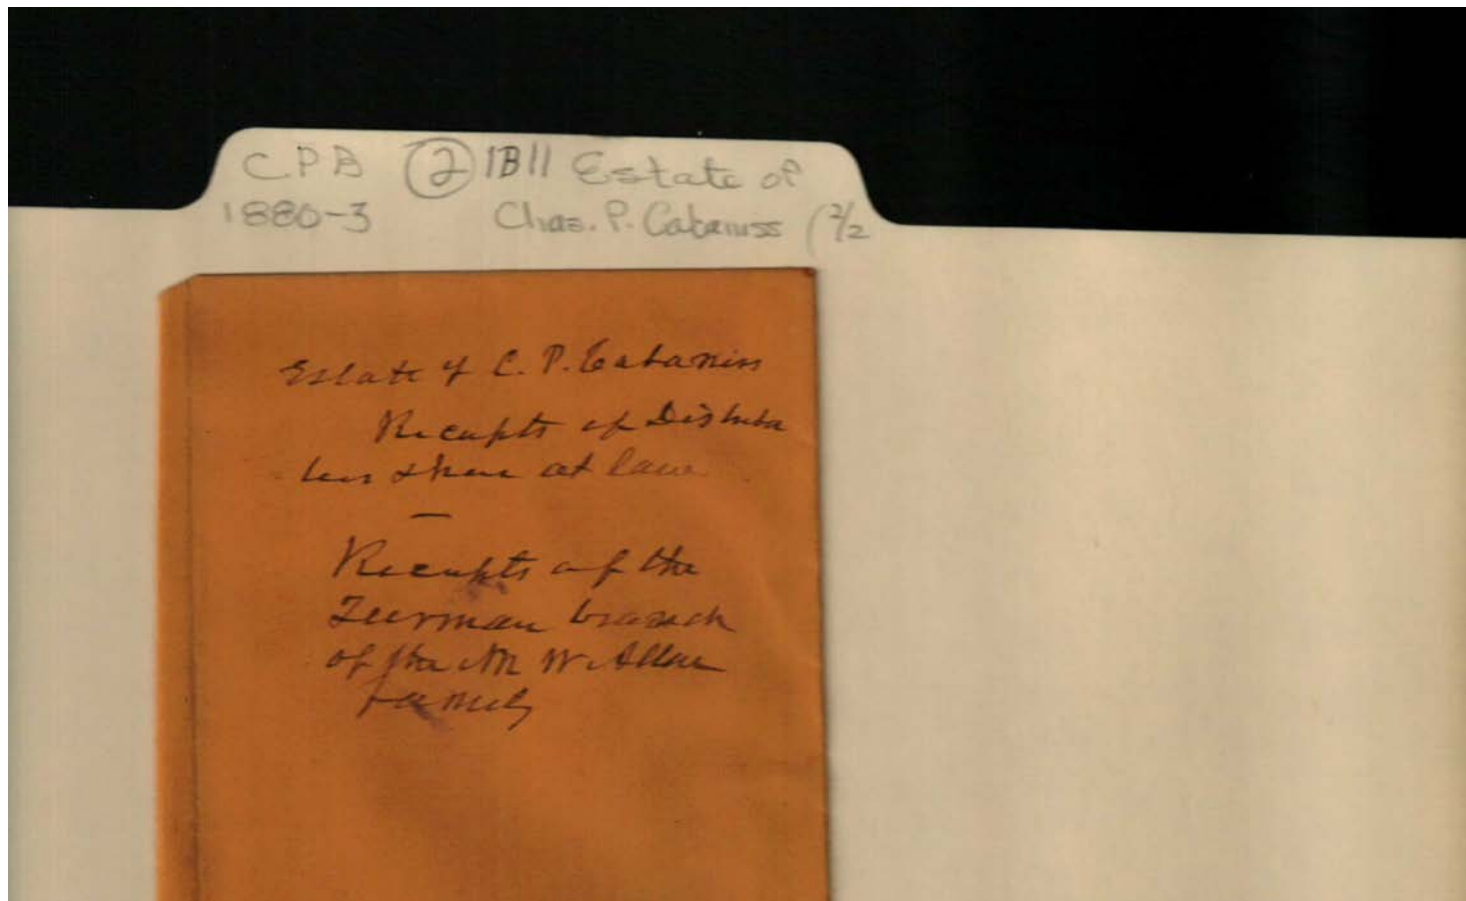 C.P.B ② 1B11 Estate of
1880-3 Chas. P. Cabaniss (2/2
Estate of C. P. Cabaniss
Receipts of Distribu
share at law
—
Receipts of the
branch
of the W. Allen
family